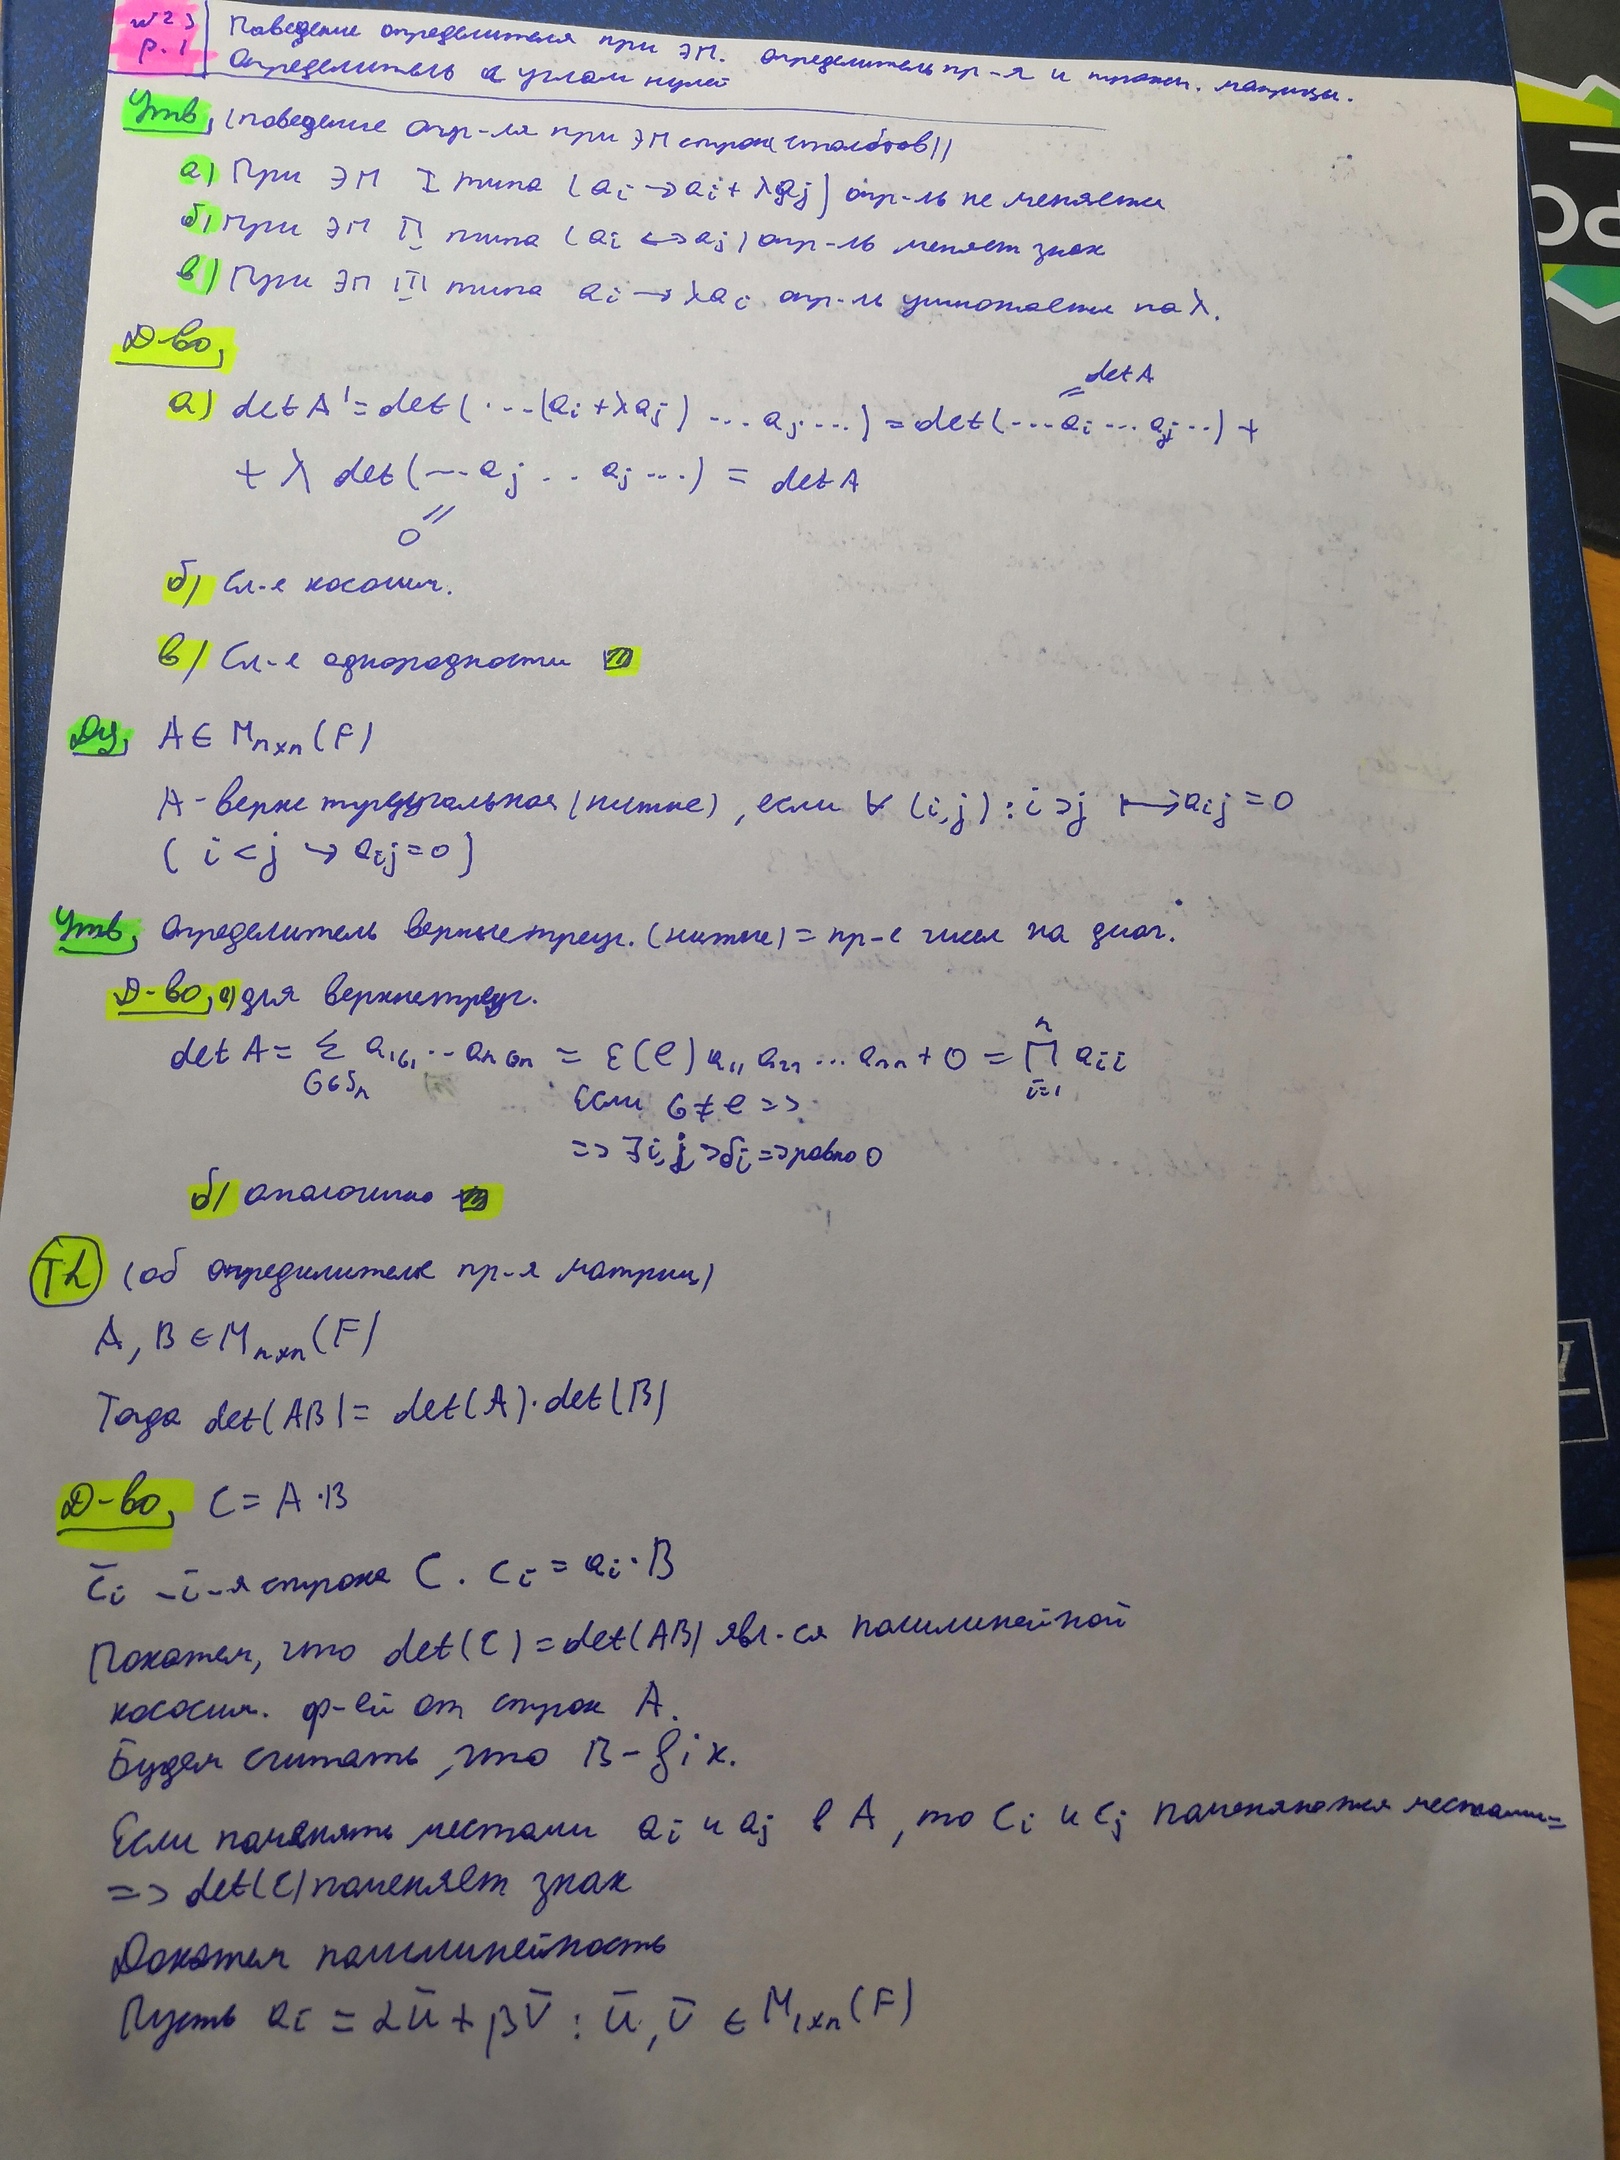 №23 р.1
Поведение определителя при ЭП. Определитель пр-я и треуг. матрицы.
Определитель с углом нулей
Утв. (поведение опр-ля при ЭП строк (столбцов))
а) При ЭП I типа (ai → ai + λaj) опр-ль не меняется
б) При ЭП II типа (ai ↔ aj) опр-ль меняет знак
в) При ЭП III типа ai → λai опр-ль умножается на λ.
Д-во,
det A
=
а) det A' = det(...(ai + λaj) ... aj ...) = det(... ai ... aj ...) +
+ λ det(... aj .. aj ...) = det A
=
0
б) Сл-е кососим.
в) Сл-е однородности
Опр. A ∈ Mn×n(F)
A - верхнетреугальная (нижне), если ∀ (i,j) : i > j ↦ aij = 0
( i < j → aij = 0 )
Утв. Определитель верхнетреуг. (нижне) = пр-е чисел на диаг.
Д-во, а) для верхнетреуг.
det A = Σ a1σ1 ... anσn = ε(e) a11 a22 ... ann + 0 = ∏ aii
σ∈Sn
n
i=1
Если σ ≠ e =>
=> ∃ i, j > σi => равно 0
б) аналогично
Th (об определителе пр-я матриц)
A, B ∈ Mn×n(F)
Тогда det(AB) = det(A)·det(B)
Д-во, C = A·B
c̄i - i-я строка C. ci = ai·B
Покажем, что det(C) = det(AB) явл-ся полилинейной
кососим. ф-ей от строк A.
Будем считать, что B - fix.
Если поменять местами ai и aj в A, то ci и cj поменяются местами =
=> det(C) поменяет знак
Докажем полилинейность
Пусть ai = αū + βv̄ : ū, v̄ ∈ M1×n(F)